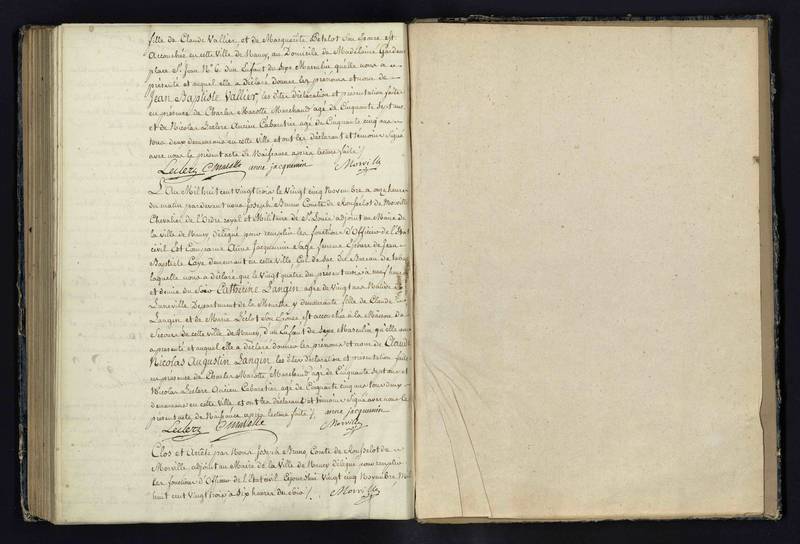 fille de Claude Vallier, et de Marguerite Betelot Son Epouse est
Accouchée en cette Ville de Nancy, au Domicile de Madelaine Gardeur
place St Jean N° 6 d'un Enfant du Sexe Masculin qu'elle nous a
présenté et auquel elle a Déclaré donner les prénoms et nom de
Jean Baptiste Vallier, les dites Déclaration et présentation faite
en présence de Charles Marotte Marchand agé de Cinquante Sept ans
et de Nicolas Leclere Ancien Cabaretier agé de Cinquante Cinq ans
tous deux demeurans en cette Ville et ont les déclarant et témoins Signé
avec nous le présent acte de Naissance après lecture faite /.
Leclere Cmarotte anne jacquemin Morville
L'An Mil huit cent vingt trois le Vingt cinq Novembre a onze heures
du matin par devant nous Joseph Bruno Comte de Rousselot de Morville
Chevalier de l'Ordre royal et Militaire de St Louis adjoint au Maire de
la Ville de Nancy, délégué pour remplir les fonctions d'Officier de l'Etat
civil Est Comparue Anne Jacquemin Sage femme Epouse de Jean
Baptiste Caye demeurant en cette Ville Cul de Sac du Bureau de tabac
laquelle nous a déclaré que le Vingt quatre du présent mois à neuf heures
et demie du Soir Catherine Langin agée de Vingt ans Native de
Luneville Departement de la Meurthe y demeurante fille de Claude
Langin et de Marie Leclot Son Epouse est accouchée à la Maison de
Secours de cette Ville de Nancy, d'un Enfant de Sexe Masculin qu'elle nous
a présenté et auquel elle a déclaré donner les prénoms et nom de Claude
Nicolas Augustin Langin, les dites déclaration et présentation faite
en présence de Charles Marotte Marchand agé de Cinquante Sept ans et
Nicolas Leclere Ancien Cabaretier agé de Cinquante cinq ans tous deux
demeurans en cette Ville et ont les déclarant et témoins Signé avec nous le
présent acte de Naissance après lecture faite /. anne jacquemin
Leclere Cmarotte Morville
Clos et Arrêté par Nous Joseph Bruno, Comte de Rousselot de
Morville, adjoint au Maire de la Ville de Nancy délégué pour remplir
les fonctions d'Officier de l'Etat civil Cejourd'hui Vingt cinq Novembre, Mil
huit cent Vingt trois a Six heures du Soir /. Morville